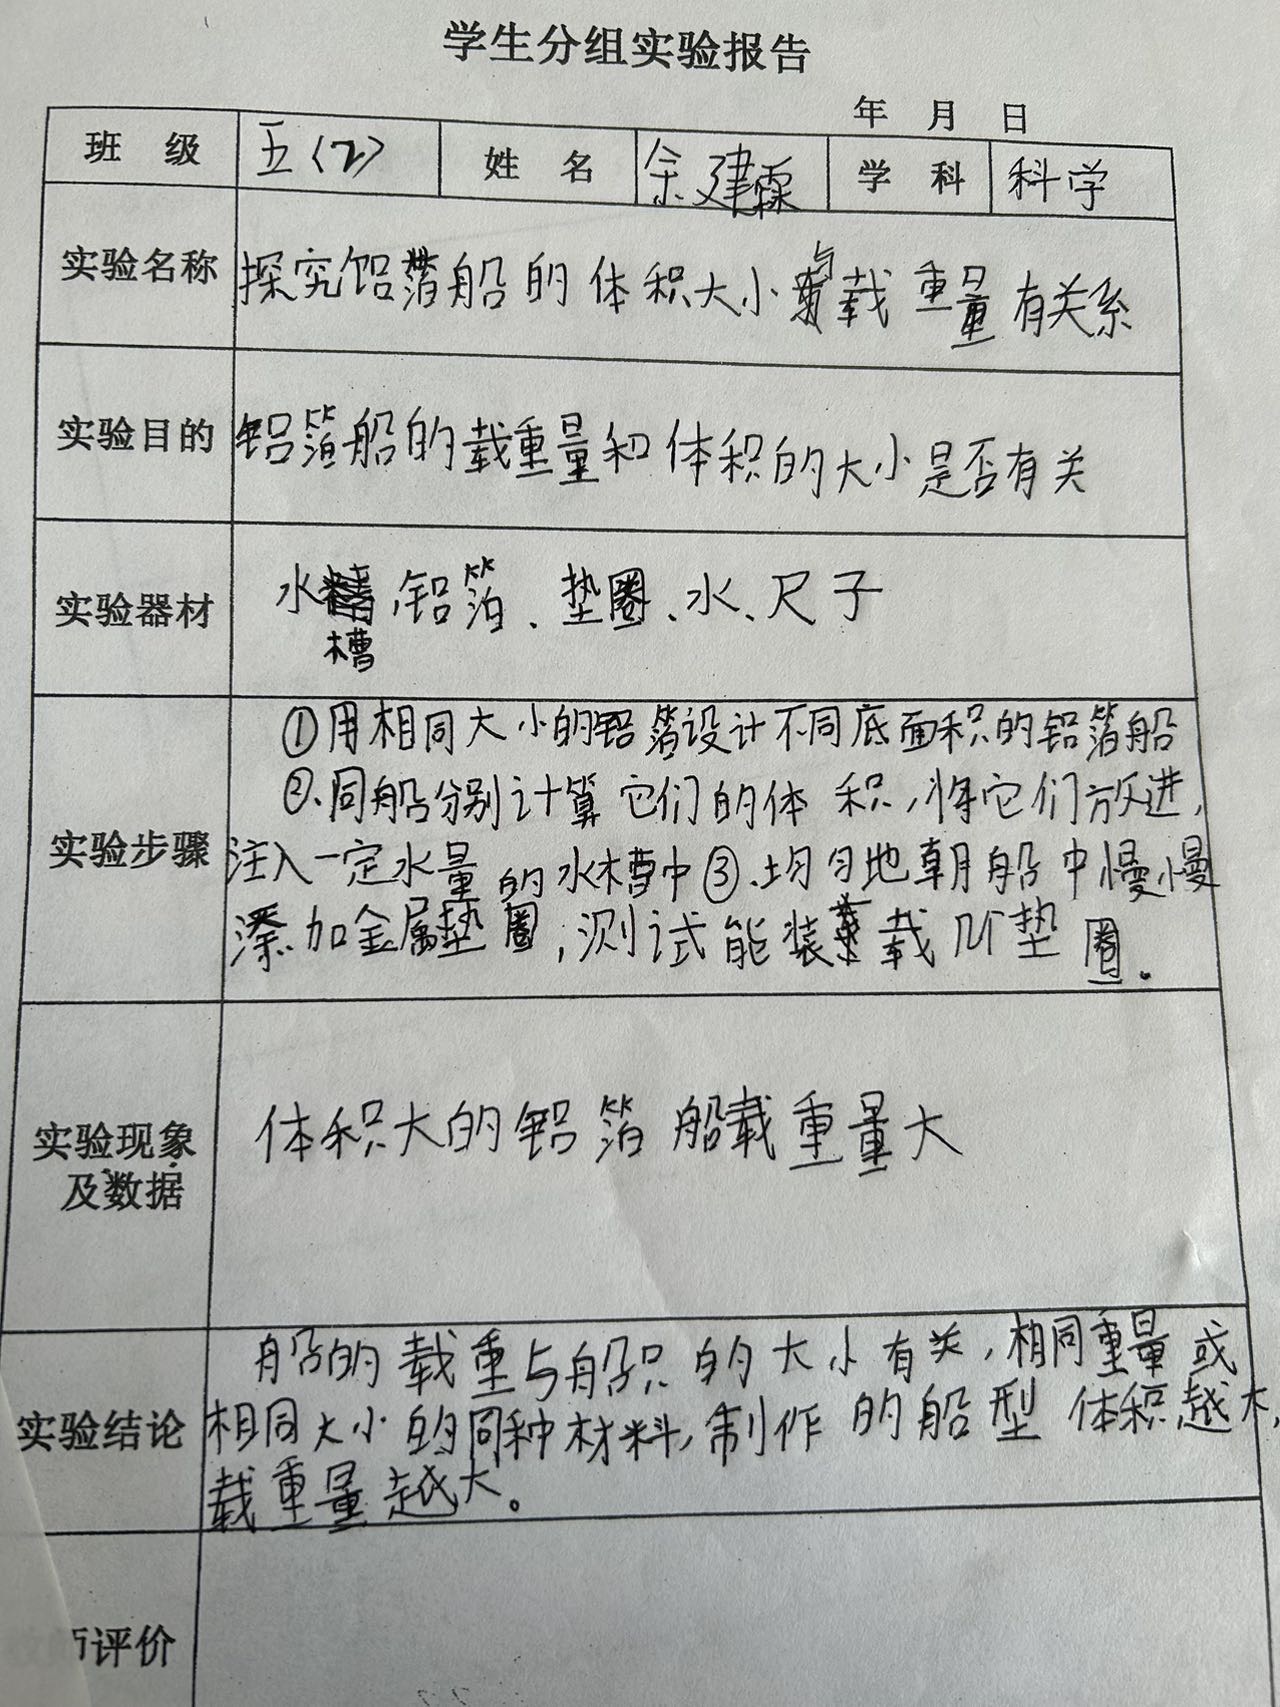 学生分组实验报告
年 月 日
班 级 五(2) 姓 名 余建霖 学 科 科学
实验名称 探究铝箔船的体积大小与载重量有关系
实验目的 铝箔船的载重量和体积的大小是否有关
实验器材 水槽,铝箔、垫圈、水、尺子
①用相同大小的铝箔设计不同底面积的铝箔船
②.同船分别计算它们的体积,将它们放进,
实验步骤 注入一定水量的水槽中③.均匀地朝船中慢慢
添加金属垫圈,测试能装载几个垫圈.
实验现象 体积大的铝箔船载重量大
及数据
船的载重与船只的大小有关,相同重量或
实验结论 相同大小的同种材料,制作的船型体积越大,
载重量越大。
师评价